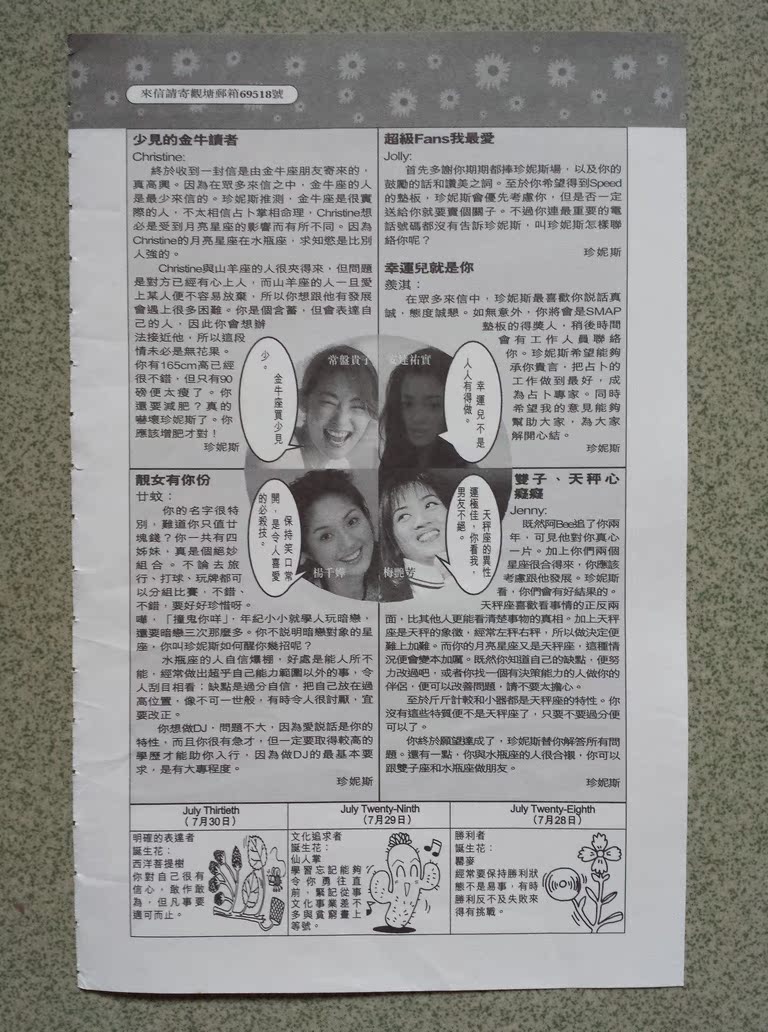 來信請寄觀塘郵箱69518號
少見的金牛讀者
Christine:
終於收到一封信是由金牛座朋友寄來的，
真高興。因為在眾多來信之中，金牛座的人
是最少來信的。珍妮斯推測，金牛座是很實
際的人，不太相信占卜掌相命理，Christine想
必是受到月亮星座的影響而有所不同。因為
Christine的月亮星座在水瓶座，求知慾是比別
人強的。
Christine與山羊座的人很夾得來，但問題
是對方已經有心上人，而山羊座的人一旦愛
上某人便不容易放棄，所以你想跟他有發展
會遇上很多困難。你是個含蓄，但會表達自
己的人，因此你會想辦
法接近他，所以這段
情未必是無花果。
你有165cm高已經
很不錯，但只有90
磅便太瘦了。你
還要減肥？真的
嚇壞珍妮斯了。你
應該增肥才對！
珍妮斯
超級Fans我最愛
Jolly:
首先多謝你期期都捧珍妮斯場，以及你的
鼓勵的話和讚美之詞。至於你希望得到Speed
的墊板，珍妮斯會優先考慮你，但是否一定
送給你就要賣個關子。不過你連最重要的電
話號碼都沒有告訴珍妮斯，叫珍妮斯怎樣聯
絡你呢？
珍妮斯
幸運兒就是你
羨淇：
在眾多來信中，珍妮斯最喜歡你說話真
誠，態度誠懇。如無意外，你將會是SMAP
墊板的得獎人，稍後時間
會有工作人員聯絡
你。珍妮斯希望能夠
承你貴言，把占卜的
工作做到最好，成
為占卜專家。同時
希望我的意見能夠
幫助大家，為大家
解開心結。
珍妮斯
常盤貴子
安達祐實
金牛座買少見
少。
幸運兒不是
人人有得做。
保持笑口常
開，是令人喜愛
的必殺技。
天秤座的異性
運極佳，你看我，
男友不絕。
楊千嬅
梅艷芳
靚女有你份
廿蚊：
你的名字很特
別，難道你只值廿
塊錢？你一共有四
姊妹，真是個絕妙
組合。不論去旅
行、打球、玩牌都可
以分組比賽，不錯、
不錯，要好好珍惜呀。
嘩，「撞鬼你咩」，年紀小小就學人玩暗戀，
還要暗戀三次那麼多。你不說明暗戀對象的星
座，你叫珍妮斯如何醒你幾招呢？
水瓶座的人自信爆棚，好處是能人所不
能，經常做出超乎自己能力範圍以外的事，令
人刮目相看；缺點是過分自信，把自己放在過
高位置，像不可一世般，有時令人很討厭，宜
要改正。
你想做DJ，問題不大，因為愛說話是你的
特性，而且你很有急才，但一定要取得較高的
學歷才能助你入行，因為做DJ的最基本要
求，是有大專程度。
珍妮斯
雙子、天秤心
癡癡
Jenny:
既然阿Bee追了你兩
年，可見他對你真心
一片。加上你們兩個
星座很合得來，你應該
考慮跟他發展。珍妮斯
看，你們會有好結果的。
天秤座喜歡看事情的正反兩
面，比其他人更能看清楚事物的真相。加上天秤
座是天秤的象徵，經常左秤右秤，所以做決定便
難上加難。而你的月亮星座又是天秤座，這種情
況便會變本加厲。既然你知道自己的缺點，便努
力改過吧，或者你找一個有決策能力的人做你的
伴侶，便可以改善問題，請不要太擔心。
至於斤斤計較和小器都是天秤座的特性。你
沒有這些特質便不是天秤座了，只要不要過分便
可以了。
你終於願望達成了，珍妮斯替你解答所有問
題。還有一點，你與水瓶座的人很合襯，你可以
跟雙子座和水瓶座做朋友。
珍妮斯
July Thirtieth
（7月30日）
明確的表達者
誕生花：
西洋菩提樹
你對自己很有
信心，敢作敢
為，但凡事要
適可而止。
July Twenty-Ninth
（7月29日）
文化追求者
誕生花：
仙人掌
學習忘記能夠
令你勇往直
前，緊記從事
文化事業差不
多與貧窮畫上
等號。
July Twenty-Eighth
（7月28日）
勝利者
誕生花：
瞿麥
經常要保持勝利狀
態不是易事，有時
勝利反不及失敗來
得有挑戰。